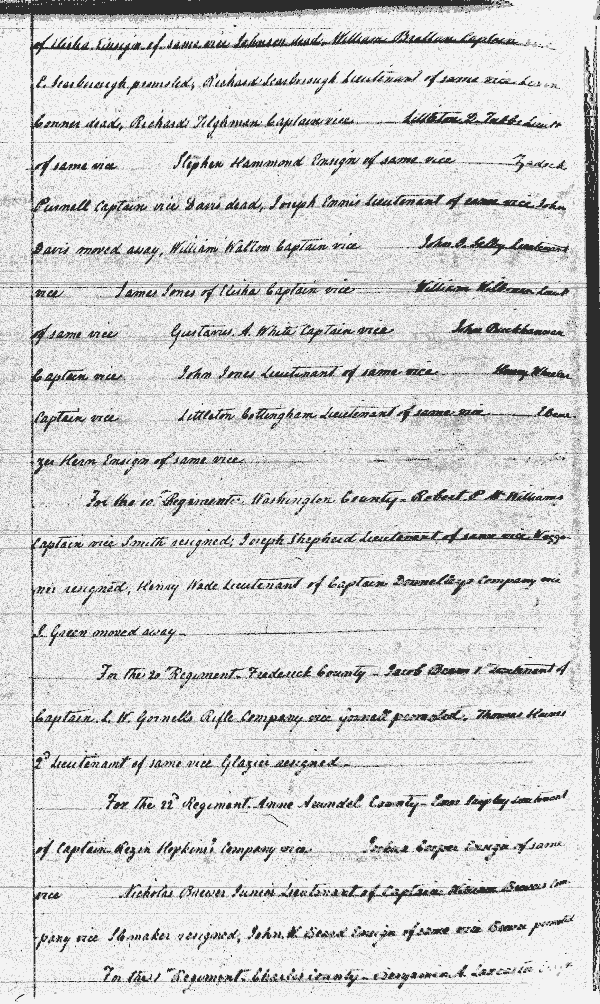 of Elisha Ensign of same vice Johnson dead, William Brattan Captain
E. Scarborough promoted, Richard Scarbrough Lieutenant of same vice
Conner dead, Richard Tilghman Captain vice Littleton D. Tubbs Lieut
of same vice Stephen Hammond Ensign of same vice Zadock
Purnell Captain vice Davis dead, Joseph Ennis Lieutenant of same vice John
Davis moved away, William Walton Captain vice John S. Selby Lieutenant
vice James Jones of Elisha Captain vice William Lieut
of same vice Gustavus A. White Captain vice John Buckhannon
Captain vice John Jones Lieutenant of same vice Henry
Captain vice Littleton Cottingham Lieutenant of same vice Ebene
zer Hern Ensign of same vice
For the 10th Regiment Washington County - Robert P. Mc Williams
Captain vice Smith resigned, Joseph Shepherd Lieutenant of same vice Wago-
ner resigned, Henry Wade Lieutenant of Captain Donnellays Company vice
J. Green moved away
For the 20th Regiment Frederick County - Jacob 1st Lieutenant of
Captain L. W. Gornell's Rifle Company vice Gornell promoted, Thomas Haines
2d Lieutenant of same vice Glazier resigned
For the 22d Regiment Anne Arundel County - Lieutenant
of Captain Rezin Hopkins's Company vice Joshua Cooper Ensign of same
vice Nicholas Brewer Junior Lieutenant of Captain William Brewers Com
pany vice Slemaker resigned, John W. Beard Ensign of same vice Brewer promoted
For the 1st Regiment Charles County - Benjamin A. Lancaster